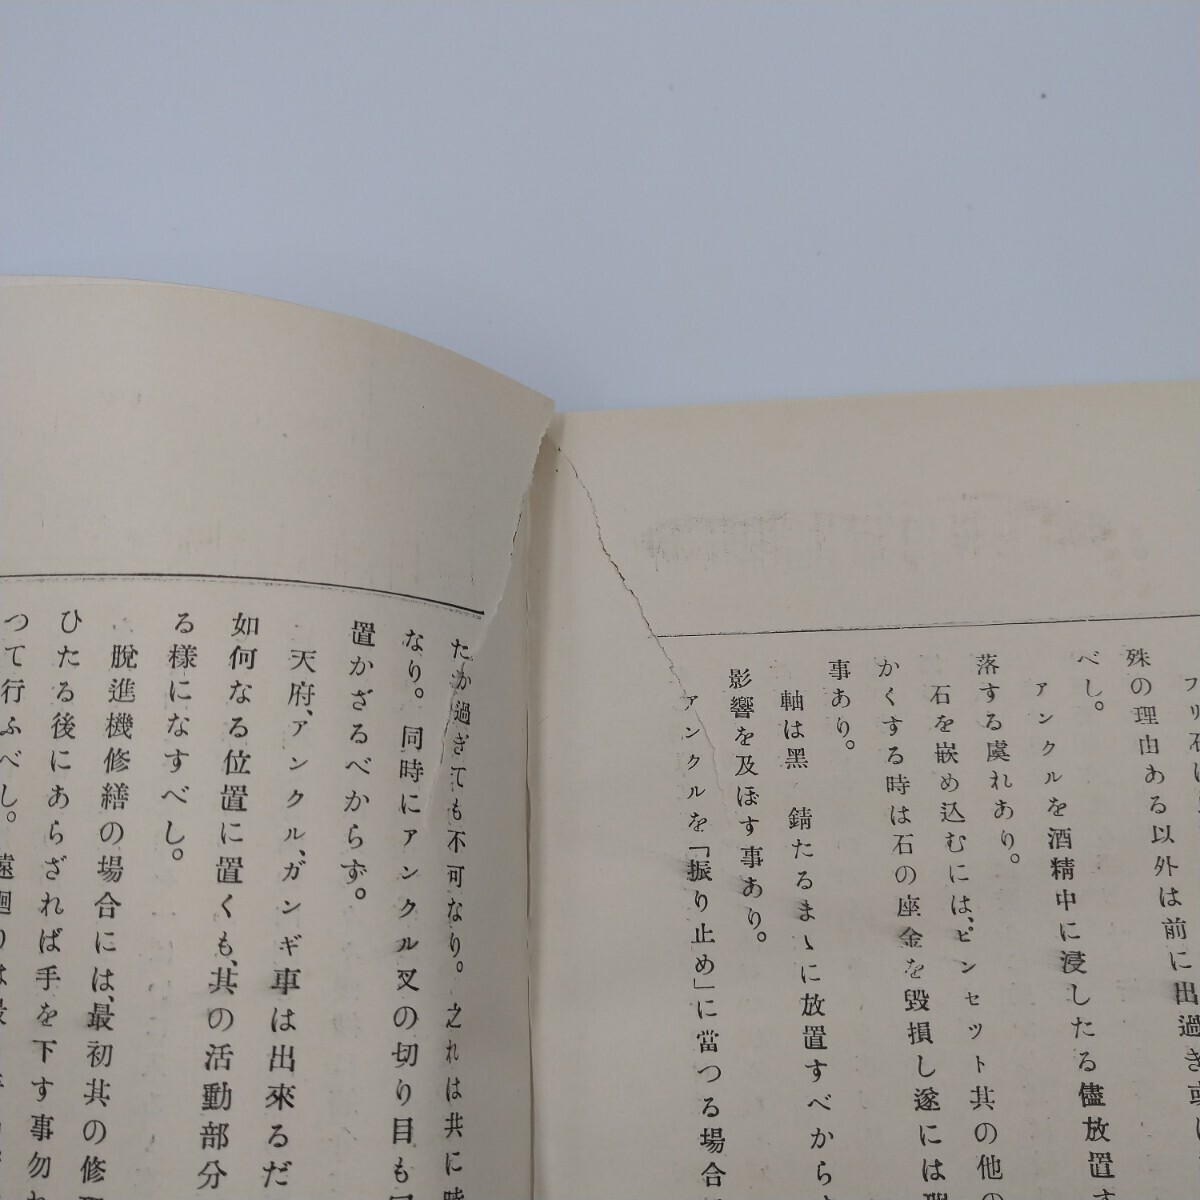 フリ石は
殊の理由ある以外は前に出過ぎ或は
べし。
アンクルを酒精中に浸したる儘放置す
落する虞れあり。
石を嵌め込むには、ピンセット其の他の
かくする時は石の座金を毀損し遂には
事あり。
軸は黑 錆たるまゝに放置すべから
影響を及ぼす事あり。
アンクルを「振り止め」に當つる場合
たか過ぎても不可なり。之れは共に時
なり。同時にアンクル叉の切り目も
置かざるべからず。
天府、アンクル、ガンギ車は出來るだ
如何なる位置に置くも、其の活動部分
る樣になすべし。
脫進機修繕の場合には、最初其の修
ひたる後にあらざれば手を下す事勿れ
つて行ふべし。遠廻りは最